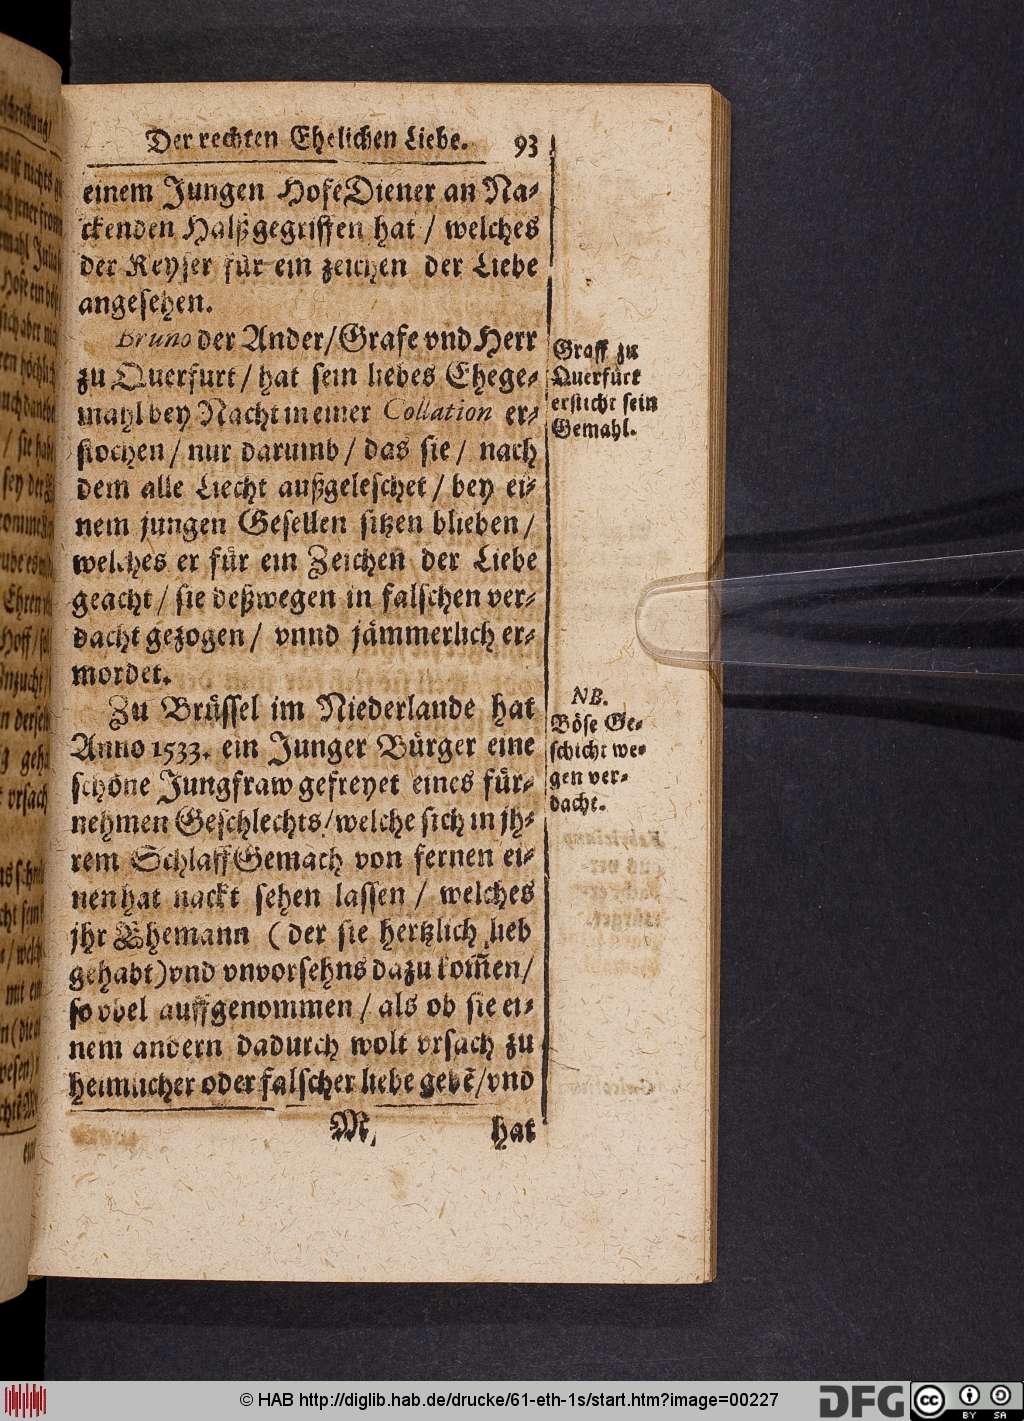 Der rechten Ehelichen Liebe. 93
einem Jungen HofeDiener an Na-
ckenden Halß gegriffen hat / welches
der Keyser für ein zeichen der Liebe
angesehen.
Bruno der Ander / Grafe vnd Herr
zu Querfurt / hat sein liebes Ehege-
mahl bey Nacht in einer Collation er-
stochen / nur darumb / das sie / nach
dem alle Liecht außgeleschet / bey ei-
nem jungen Gesellen sitzen blieben /
welches er für ein Zeichen der Liebe
geacht / sie deßwegen in falschen ver-
dacht gezogen / vnnd jämmerlich er-
mordet.
Graff zu
Querfurt
ersticht sein
Gemahl.
Zu Brüssel im Niederlande hat
Anno 1533. ein Junger Bürger eine
schöne Jungfraw gefreyet eines für-
nehmen Geschlechts / welche sich in jh-
rem SchlaffGemach von fernen ei-
nen hat nackt sehen lassen / welches
jhr Ehemann ( der sie hertzlich lieb
gehabt) vnd vnvorsehns dazu kom̃en /
so vbel auffgenommen / als ob sie ei-
nem andern dadurch wolt vrsach zu
heimlicher oder falscher liebe gebẽ / vnd
NB.
Böse Ge-
schicht we-
gen ver-
dacht.
M, hat
© HAB http://diglib.hab.de/drucke/61-eth-1s/start.htm?image=00227
DFG
cc BY SA